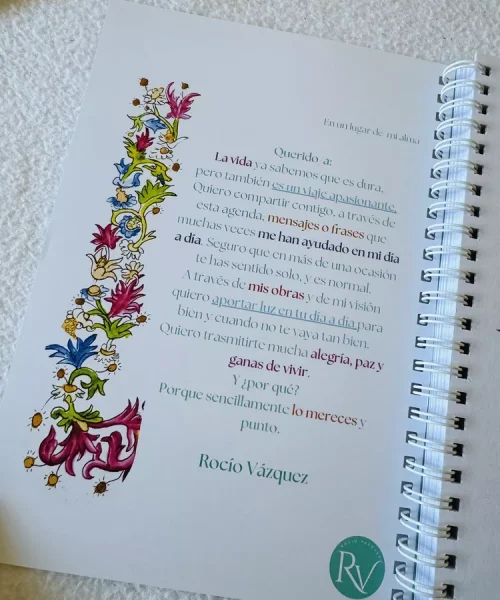 En un lugar de mi alma
Querido a:
La vida ya sabemos que es dura,
pero también es un viaje apasionante.
Quiero compartir contigo, a través de
esta agenda, mensajes o frases que
muchas veces me han ayudado en mi día
a día. Seguro que en más de una ocasión
te has sentido solo, y es normal.
A través de mis obras y de mi visión
quiero aportar luz en tu día a día para
bien y cuando no te vaya tan bien.
Quiero trasmitirte mucha alegría, paz y
ganas de vivir.
Y ¿por qué?
Porque sencillamente lo mereces y
punto.
Rocío Vázquez
RV